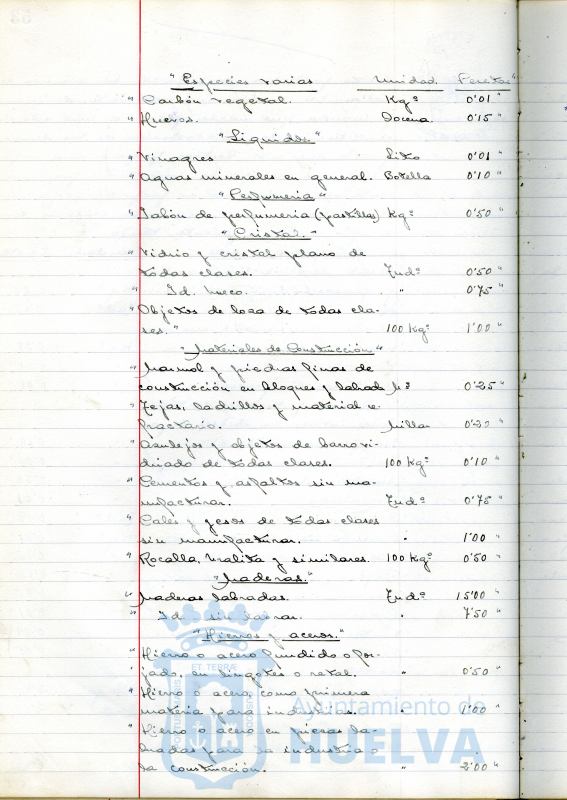 "Especies varias Unidad. Pesetas"
" Carbón vegetal. Kgº 0'01 "
" Huevos. Docena. 0'15 "
"Liquidos"
" Vinagres Litro 0'01 "
" Aguas minerales en general. Botella 0'10 "
"Perfumeria"
" Jabón de perfumeria (pastillas) kgº 0'50 "
"Cristal."
" Vidrio y cristal plano de
todas clases. 0'50 "
" Id. hueco. " 0'75 "
" Objetos de loza de todas cla-
ses." 100 Kgº 1'00 "
"Materiales de Construcción"
" Marmol y piedras finas de
construcción en bloques y labrada M³ 0'25 "
" Tejas, ladrillos y material re
fractario. Millar 0'20 "
" Azulejos y objetos de barro vi-
driado de todas clases. 100 Kgº 0'10 "
" Cementos y asfaltos sin ma-
nufacturar. 0'75 "
" Cales y yesos de todas clases
sin manufacturar. " 1'00 "
" Rocalla, Uralita y similares. 100 Kgº 0'50 "
"Maderas."
" Maderas labradas. 15'00 "
" Id. sin labrar. " 7'50 "
"Hierros y aceros."
" Hierro o acero fundido o for-
jado, en lingotes o retal. " 0'50 "
" Hierro o acero, como primera
materia para industrias. " 1'00 "
" Hierro o acero en piezas la-
bradas para la industria o
la construcción. " 2'00 "
ET TERRÆ
Ayuntamiento de
HUELVA